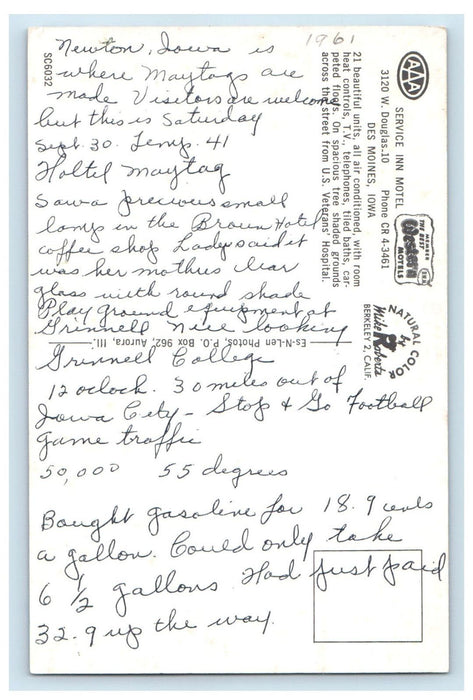 1961
Newton, Iowa is
where Maytags are
made Visitors are welcome
but this is Saturday
Sept. 30. Temp. 41
Hotel Maytag
Saw a precious small
lamp in the Brown Hotel
coffee shop Lady said it
was her mothers clear
glass with round shade
Play ground equipment at
Grinnell Nice looking
Grinnell College
12 oclock. 30 miles out of
Iowa City - Stop & Go Football
game traffic
50,000 55 degrees
Bought gasoline for 18.9 cents
a gallon. Could only take
6 1/2 gallons Had just paid
32.9 up the way.
SC6032
AAA
SERVICE INN MOTEL
3120 W. Douglas-10 Phone CR 4-3461
DES MOINES, IOWA
21 beautiful units, all air conditioned, with room
heat controls, T.V., telephones, tiled baths, car-
peted floors. On spacious tree shaded grounds
across the street from U.S. Veterans' Hospital.
MEMBER
THE BEST
Western
MOTELS
NATURAL COLOR
by
Mike Roberts
BERKELEY 2, CALIF.
Es-N-Len Photos, P.O. Box 962, Aurora, Ill.